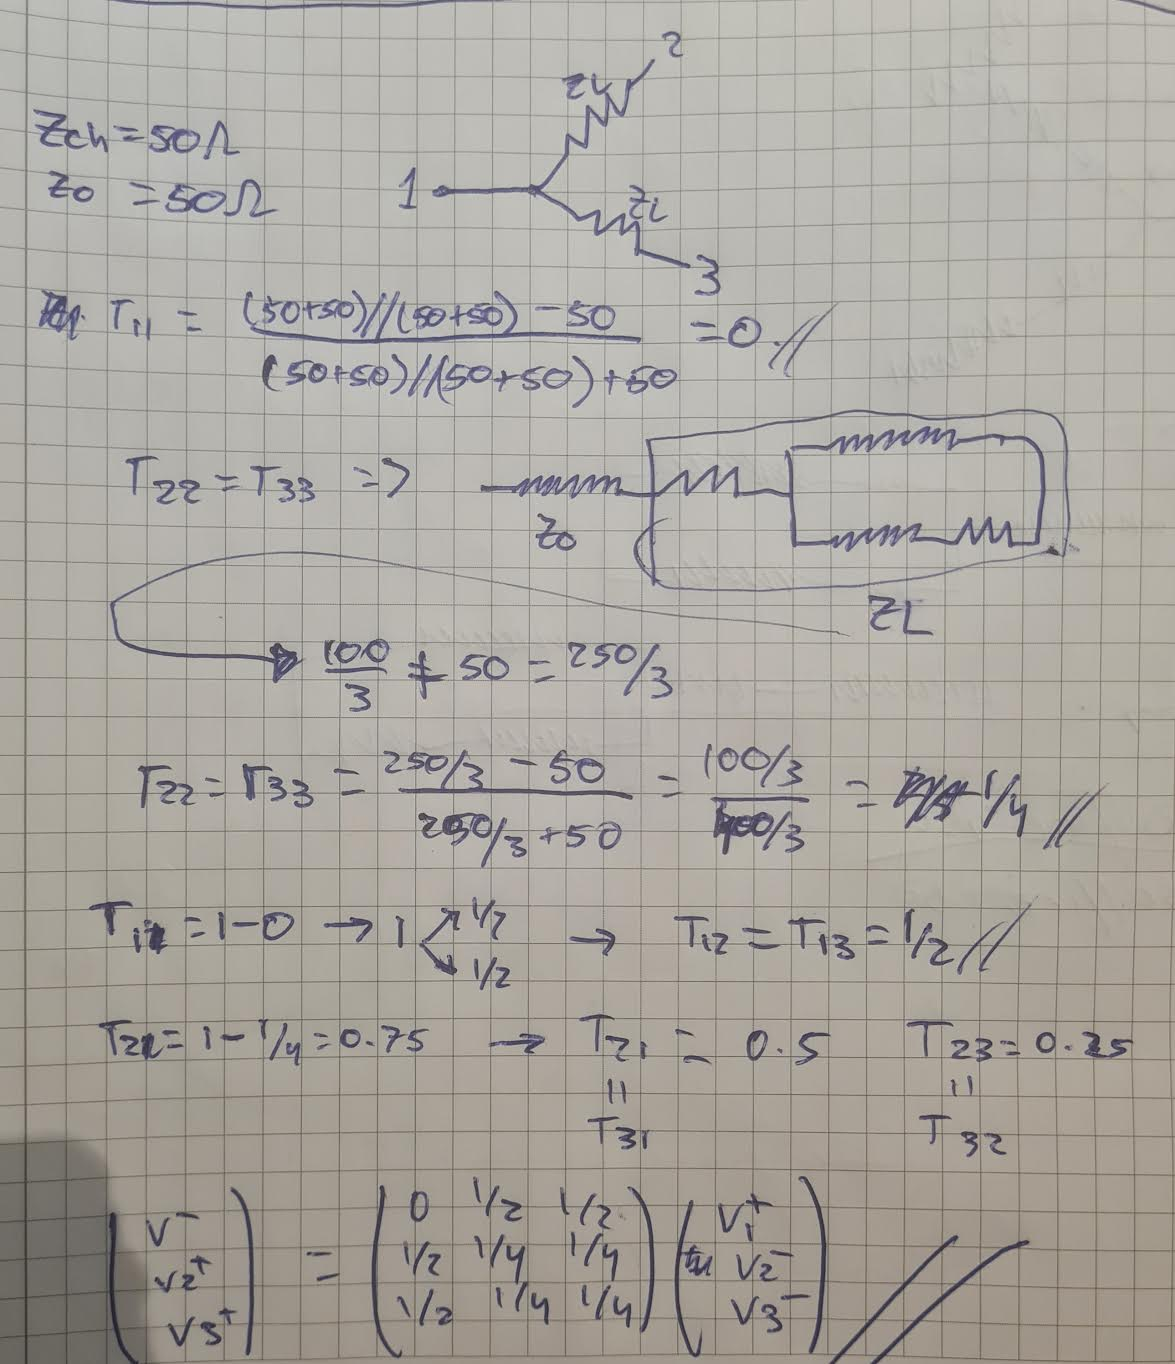 2
ZL
Zch = 50Ω
Z0 = 50Ω
1
ZL
3
T11 = (50+50)//(50+50) - 50 / (50+50)//(50+50) + 50 = 0 //
T22 = T33 =>
Z0
ZL
100/3 + 50 = 250/3
T22 = T33 = (250/3 - 50) / (250/3 + 50) = (100/3) / (400/3) = 1/4 //
= 1 - 0 → 1 1/2 1/2 → T12 = T13 = 1/2 //
= 1 - 1/4 = 0.75 → T21 = 0.5 T23 = 0.25
= =
T31 T32
(V- V2+ V3+) = (0 1/2 1/2; 1/2 1/4 1/4; 1/2 1/4 1/4) (V1+ V2- V3-) //